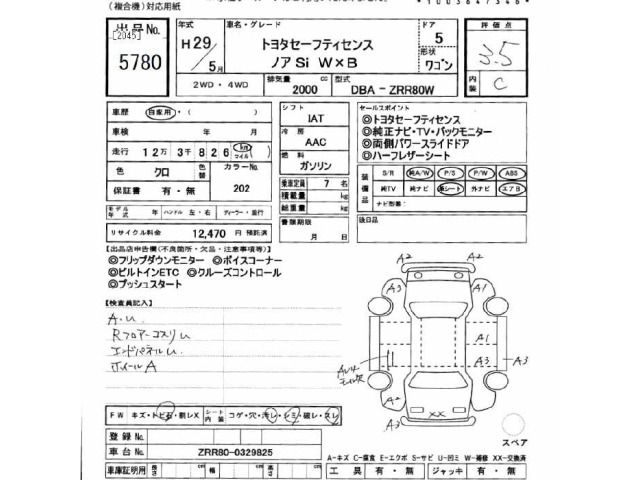 (複合機)対応用紙
出品No.
[2045]
5780
年式
H29/5月
車名・グレード
トヨタセーフティセンス
ノア Si W×B
ドア
5
形状
ワゴン
評価点
3.5
内装
C
2WD・4WD
排気量
2000 cc
型式
DBA － ZRR80W
車歴
自家用・( )
車検
年 月
走行
12万 3千 826 km マイル
色
クロ
色替
カラーNo.
202
保証書
有・無
モデル年式
年
ハンドル 左・右
ディーラー・並行
リサイクル料金
12,470 円 預託済
シフト
IAT
冷房
AAC
燃料
ガソリン
乗車定員
7 名
積載量
kg
総重量
kg
書類期限
月 日
セールスポイント
◎トヨタセーフティセンス
◎純正ナビ・TV・バックモニター
◎両側パワースライドドア
◎ハーフレザーシート
装備品
S/R 純A/W P/S P/W ABS
純TV 純ナビ 革シート 外ナビ エアB
ナビ形番:
後日品
【出品店申告欄(不良箇所・欠品・注意事項等)】
◎フリップダウンモニター ◎ボイスコーナー
◎ビルトインETC ◎クルーズコントロール
◎プッシュスタート
【検査員記入】
A.U
RフロアーコスリU
エンドパネルU
ホイールA
A2 A2
A3 A1
A1
A3 A3
A2 A2
XX
A3
スペア
FW キズ・トビ石・割レX
シート内装 コゲ・穴・汚レ・シミ・破レ・スレ
登録No.
車台No.
ZRR80-0329825
A-キズ C-腐食 E-エクボ S-サビ U-凹ミ W-補修 XX-交換済
車庫証明用 長さ cm 幅 cm 高さ cm
工具 有・無 ジャッキ 有・無